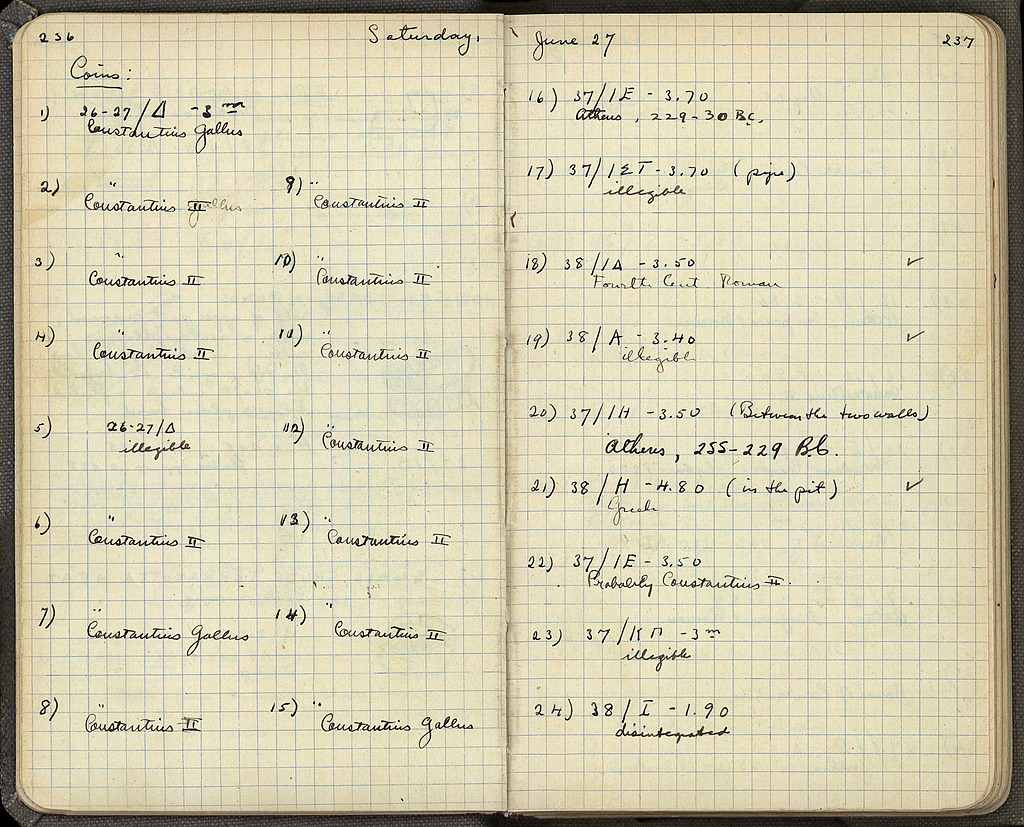 236
Saturday,
Coins:
1) 26-27/Δ -3 m
Constantius Gallus
2) "
Constantius II Gallus
3) "
Constantius II
4) "
Constantius II
5) 26-27/Δ
illegible
6) "
Constantius II
7) "
Constantius Gallus
8) "
Constantius II
9) "
Constantius II
10) "
Constantius II
11) "
Constantius II
12) "
Constantius II
13) "
Constantius II
14) "
Constantius II
15) "
Constantius Gallus
June 27
237
16) 37/ΙΕ - 3.70
Athens, 229-30 B.C.
17) 37/ΙΣΤ - 3.70 (pipe)
illegible
18) 38/ΙΔ - 3.50 ✓
Fourth Cent Roman
19) 38/Α - 3.40 ✓
illegible
20) 37/ΙΗ - 3.50 (Between the two walls)
Athens, 255-229 B.C.
21) 38/Η - 4.80 (in the pit) ✓
Greek
22) 37/ΙΕ - 3.50
Probably Constantius II.
23) 37/ΚΠ - 3 m
illegible
24) 38/Ι - 1.90
disintegrated